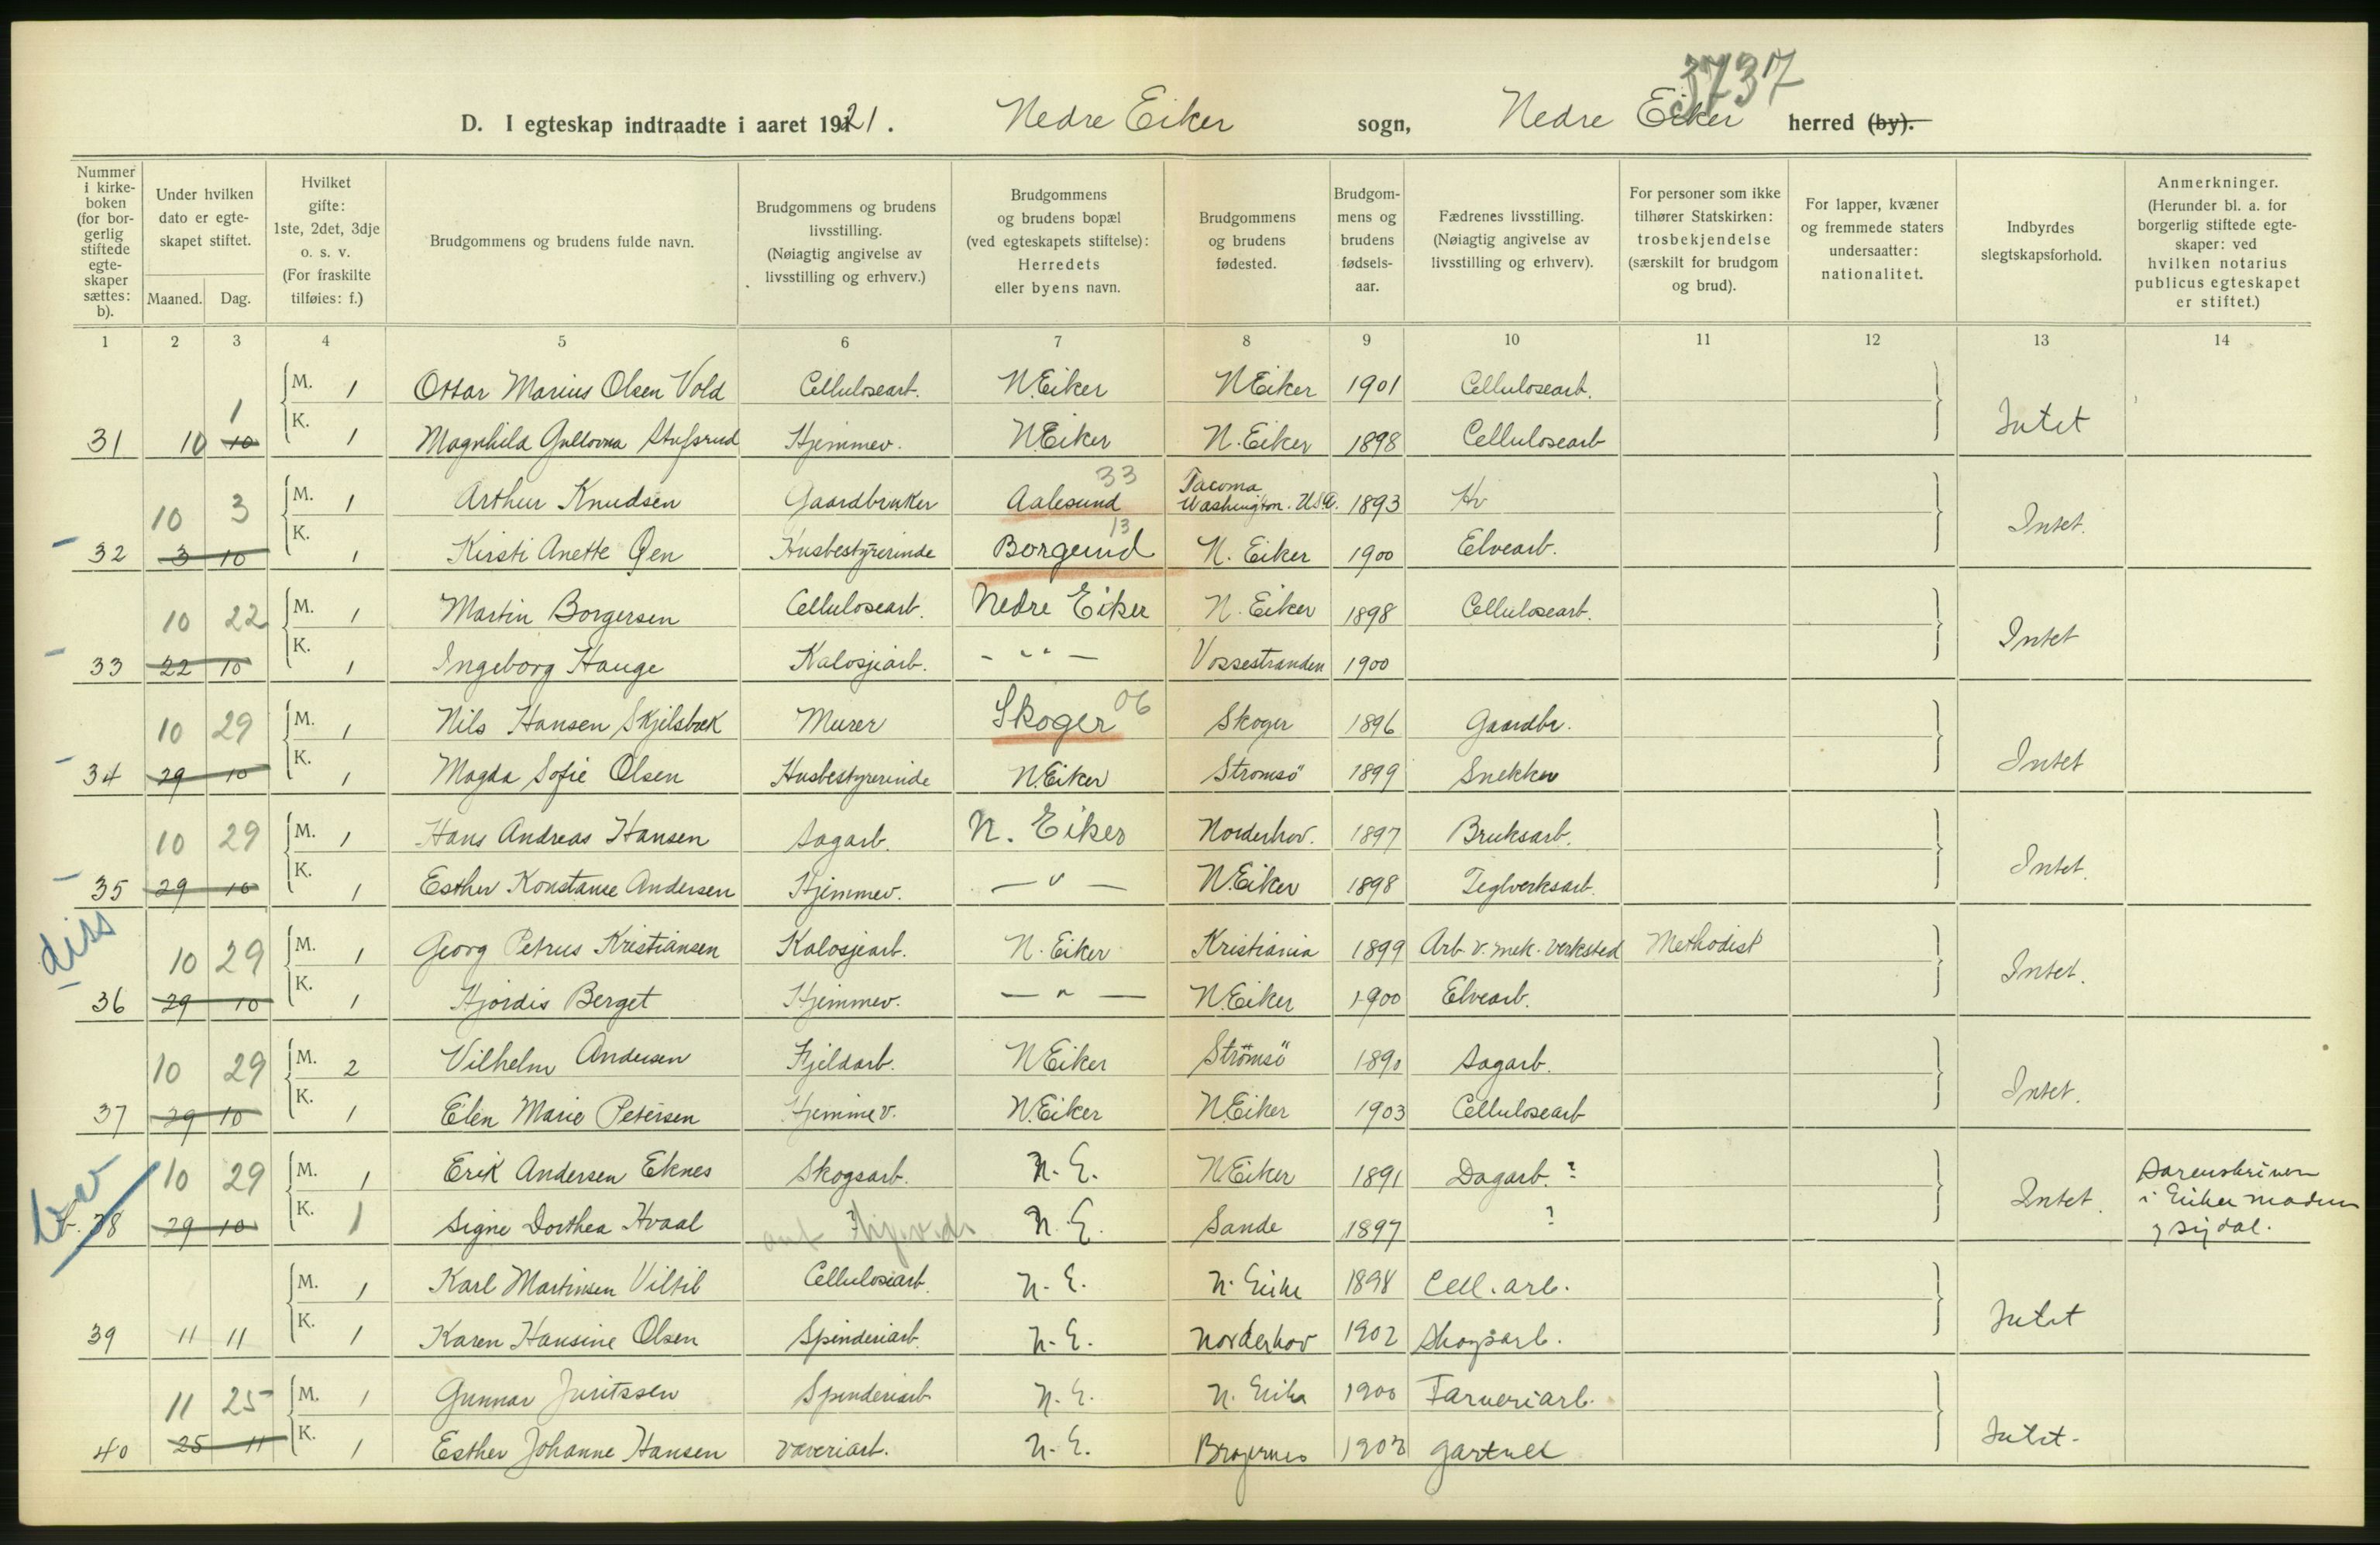 3737
D. I egteskap indtraadte i aaret 1921. Nedre Eiker sogn, Nedre Eiker herred (by).
Nummer i kirke-boken (for bor-gerlig stiftede egte-skaper sættes: b). Under hvilken dato er egte-skapet stiftet. Maaned. Dag. Hvilket gifte: 1ste, 2det, 3dje o. s. v. (For fraskilte tilføies: f.) Brudgommens og brudens fulde navn. Brudgommens og brudens livsstilling. (Nøiagtig angivelse av livsstilling og erhverv.) Brudgommens og brudens bopæl (ved egteskapets stiftelse): Herredets eller byens navn. Brudgommens og brudens fødested. Brudgom-mens og brudens fødsels-aar. Fædrenes livsstilling. (Nøiagtig angivelse av livsstilling og erhverv). For personer som ikke tilhører Statskirken: trosbekjendelse (særskilt for brudgom og brud). For lapper, kvæner og fremmede staters undersaatter: nationalitet. Indbyrdes slegtskapsforhold. Anmerkninger. (Herunder bl. a. for borgerlig stiftede egte-skaper: ved hvilken notarius publicus egteskapet er stiftet.)
1 2 3 4 5 6 7 8 9 10 11 12 13 14
1 M. 1 Ottar Marius Olsen Vold Cellulosearb. N.Eiker N.Eiker 1901 Cellulosearb.
31 10 10 K. 1 Magnhild Gullovna Stufsrud Hjemmev. N.Eiker N.Eiker 1898 Cellulosearb Intet
10 3 M. 1 Arthur Knudsen Gaardbruker Aalesund 33 Tacoma Washington. USA. 1893
32 3 10 K. 1 Kirsti Anette Gen Husbestyrerinde Borgund 13 N. Eiker 1900 Elvearb. Intet.
10 22 M. 1 Martin Borgersen Cellulosearb. Nedre Eiker N. Eiker 1898 Cellulosearb.
33 22 10 K. 1 Ingeborg Hauge Kalosjearb. - " - Vossestranden 1900 Intet
10 29 M. 1 Nils Hansen Skjelsbæk Murer Skoger 06 Skoger 1896 Gaardbr.
34 29 10 K. 1 Magda Sofie Olsen Husbestyrerinde N.Eiker Strømsö 1899 Snekker Intet
10 29 M. 1 Hans Andreas Hansen Sagarb. N. Eiker Norderhov. 1897 Bruksarb.
35 29 10 K. 1 Esther Konstanse Andersen Hjemmev. - " - N.Eiker 1898 Teglverksarb. Intet.
diss
10 29 M. 1 Georg Petrus Kristiansen Kalosjearb. N. Eiker Kristiania 1899 Arb. v. mek. verksted Methodist
36 29 10 K. 1 Hjördis Berget Hjemmev. - " - N.Eiker 1900 Elvearb. Intet.
10 29 M. 2 Vilhelm Andersen Fjeldarb. N.Eiker Strömsö 1890 Sagarb.
37 29 10 K. 1 Elen Marie Petersen Hjemmev. N.Eiker N.Eiker 1903 Cellulosearb Intet.
10 29 M. 1 Erik Andersen Eknes Skogsarb. N. E. N.Eiker 1891 Dagarb. ?
38 29 10 K. 1 Signe Dorthea Hvaal N. E. Sande 1897 ? Intet. Sorenskriveren i Eiker Modum og Sigdal.
M. 1 Karl Martinsen Viltil Cellulosearb. N. E. N. Eiker 1898 Cell. arb.
39 11 11 K. 1 Karen Hansine Olsen Spinderiarb. N. E. Norderhov 1902 Skogsarb. Intet
11 25 M. 1 Gunnar Juritssen Spinderiarb N. E. N. Eiker 1900 Farveriarb.
40 25 11 K. 1 Esther Johanne Hansen Væveriarb. N. E. Bragernes 1903 Gartner Intet.